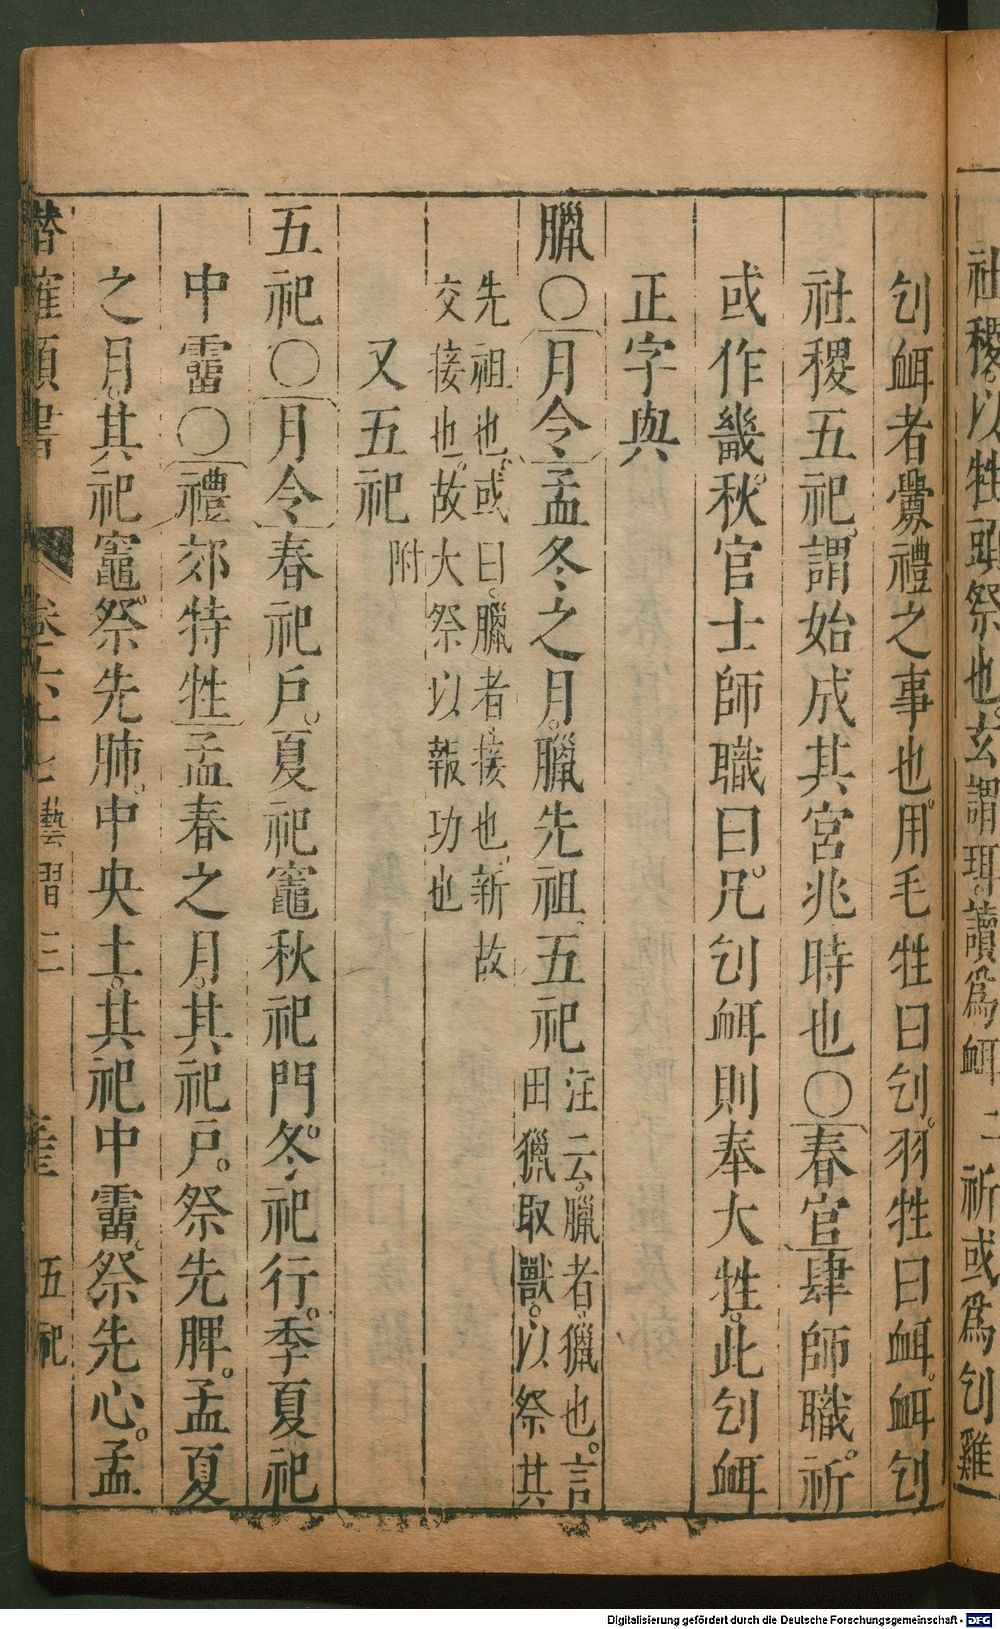 社稷以牲頭祭也玄謂珥讀爲衈 祈或爲刉雞
刉衈者釁禮之事也用毛牲曰刉羽牲曰衈衈刉
社稷五祀謂始成其宮兆時也〇春官肆師職祈
或作畿秋官士師職曰凡刉衈則奉犬牲此刉衈
正字與
臘〇月令孟冬之月臘先祖五祀注云臘者獵也言
田獵取獸以祭其
先祖也或曰臘者接也新故
交接也故大祭以報功也
又五祀附
五祀〇月令春祀戶夏祀竈秋祀門冬祀行季夏祀
中霤〇禮郊特牲孟春之月其祀戶祭先脾孟夏
之月其祀竈祭先肺中央土其祀中霤祭先心孟
潛確類書 卷六十七 藝習三 五祀
Digitalisierung gefördert durch die Deutsche Forschungsgemeinschaft - DFG